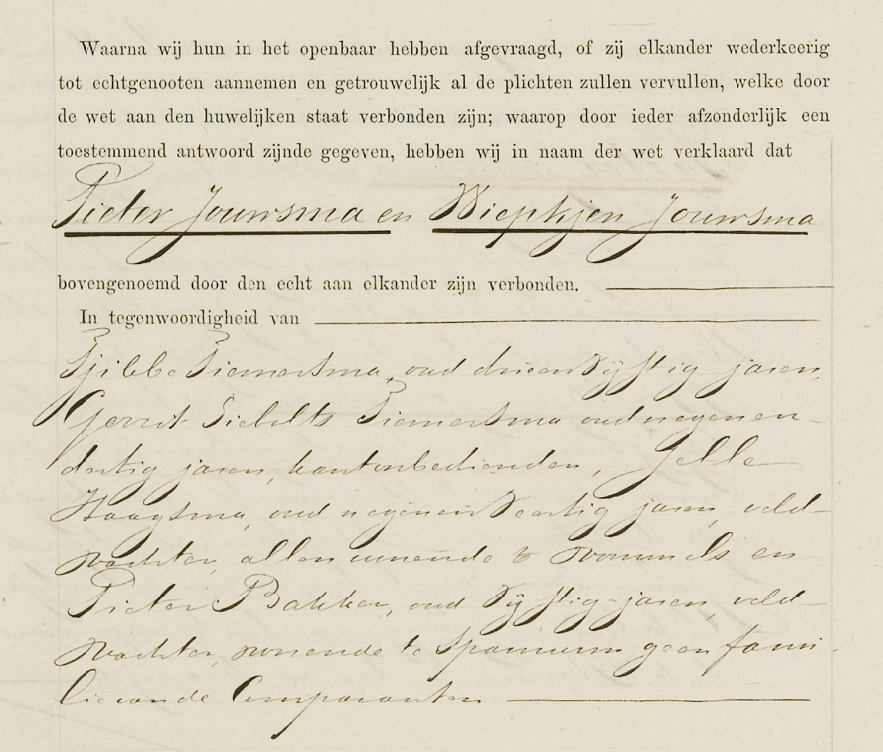 Waarna wij hun in het openbaar hebben afgevraagd, of zij elkander wederkeerig
tot echtgenooten aannemen en getrouwelijk al de plichten zullen vervullen, welke door
de wet aan den huwelijken staat verbonden zijn; waarop door ieder afzonderlijk een
toestemmend antwoord zijnde gegeven, hebben wij in naam der wet verklaard dat
Pieter Jouwsma en Wiepkjen Jouwsma
bovengenoemd door den echt aan elkander zijn verbonden.
In tegenwoordigheid van
Tjibbe Tiemersma, oud drieenvijftig jaren,
Gerrit Siebolts Tiemersma oud negenen-
dertig jaren, kantoorbedienden, Jelle
Haagsma, oud negenenveertig jaren, veld-
wachter, allen wonende te Wommels en
Pieter Bakker, oud vijftig jaren, veld-
wachter, wonende te Spannum geen fami-
lie van de Comparanten